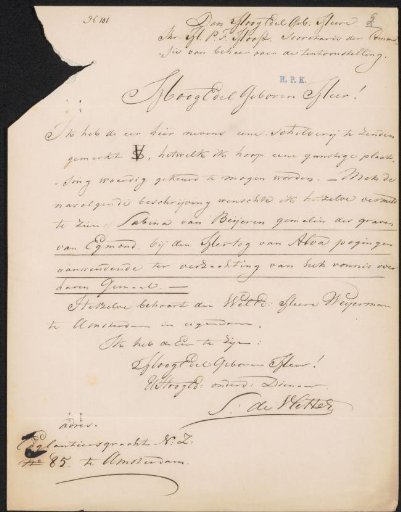 Den HoogEdel Geb. Heere
Jhr P. F. Hooft Secretaris der Commis-
sie van beheer voor de tentoonstelling.
H.P.K.
HoogEdel Geboren Heer!
Ik heb de eer hier nevens eene schilderij te zenden
gemerkt hetwelk ik hoop eene gunstige plaat-
sing waardig gekeurd te mogen worden. — Met de
navolgende beschrijving wenschte ik hetzelve vermeld
te zien: Sabina van Beijeren gemalin der graven
van Egmond bij den Hertog van Alva pogingen
aanwendende ter verzachting van het vonnis over
haren Gemaal. —
Hetzelve behoort den WelEd: Heere Weijerman
te Amsterdam in eigendom.
Ik heb de Eer te zijn:
HoogEdel Geboren Heer!
UHoogEd: onderd: Dienaar
S: de Vletter
adres.
Eglantiersgracht N: Z:
85. te Amsterdam.